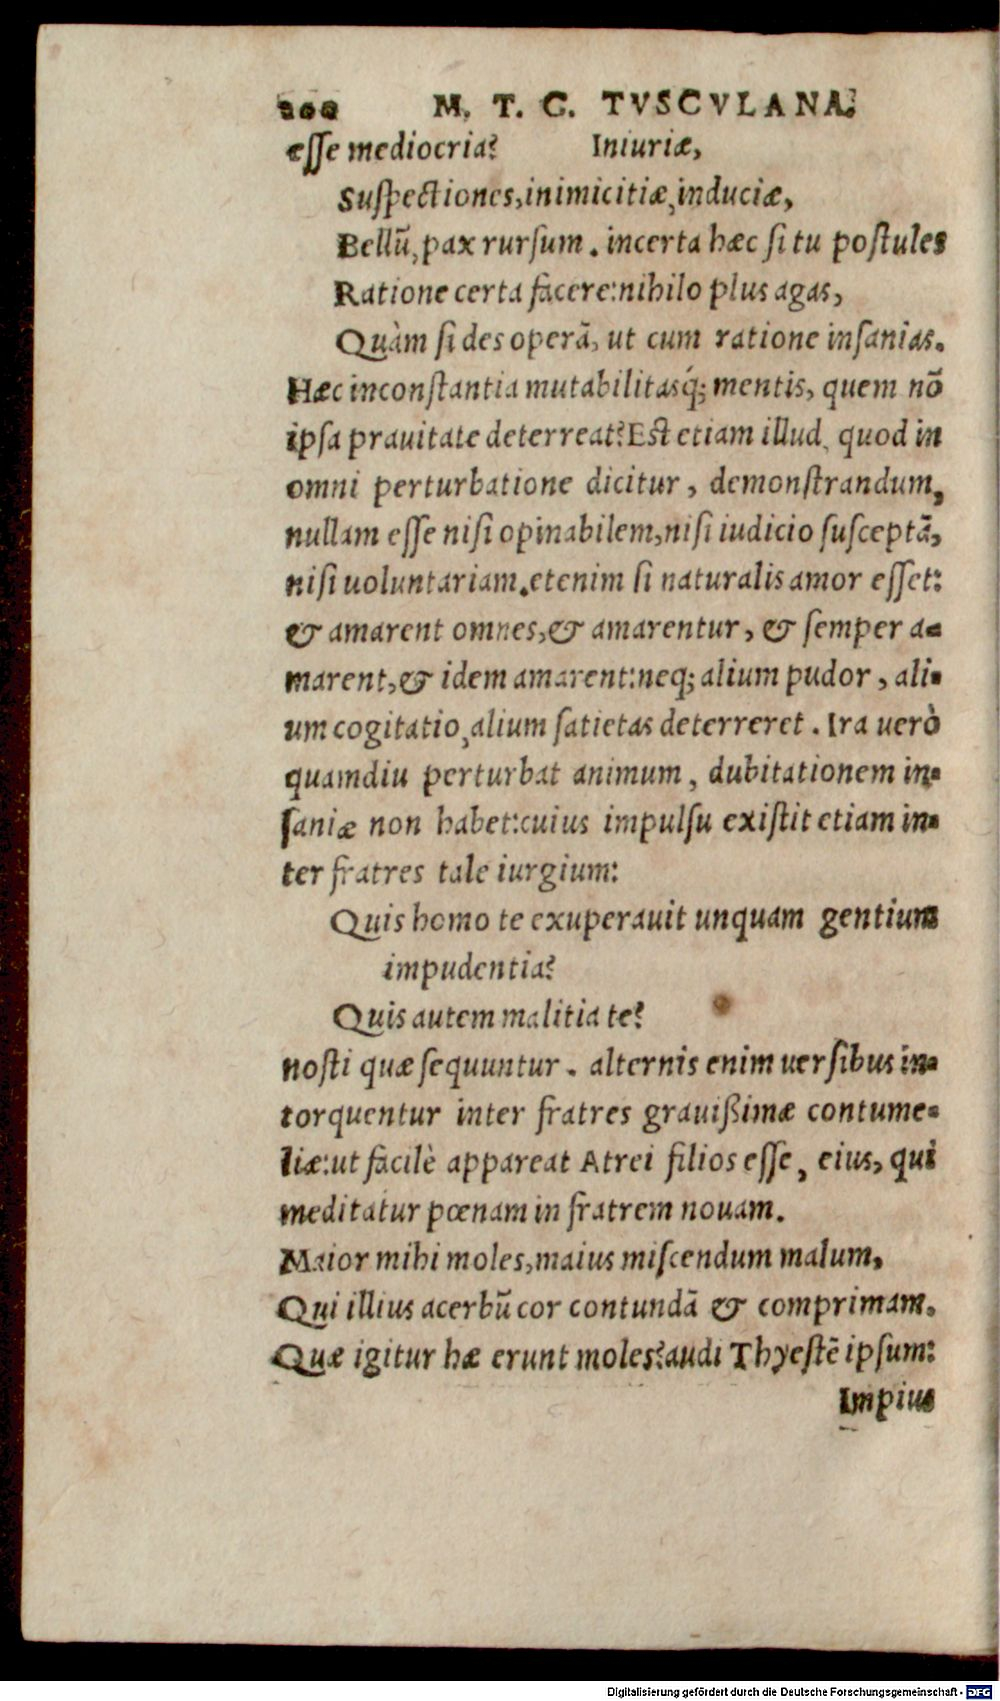 200 M. T. C. TVSCVLANA.
eſſe mediocria? Iniuriæ,
Suſpectiones, inimicitiæ, induciæ,
Bellū, pax rurſum. incerta hæc ſi tu poſtules
Ratione certa facere: nihilo plus agas,
Quàm ſi des operā, ut cum ratione inſanias.
Hæc inconſtantia mutabilitasq́; mentis, quem nō
ipſa prauitate deterreat? Eſt etiam illud, quod in
omni perturbatione dicitur, demonſtrandum,
nullam eſſe niſi opinabilem, niſi iudicio ſuſceptā,
niſi uoluntariam. etenim ſi naturalis amor eſſet:
& amarent omnes, & amarentur, & ſemper a-
marent, & idem amarent: neq; alium pudor, ali-
um cogitatio, alium ſatietas deterreret. Ira uerò
quamdiu perturbat animum, dubitationem in-
ſaniæ non habet: cuius impulſu exiſtit etiam in-
ter fratres tale iurgium:
Quis homo te exuperauit unquam gentium
impudentia?
Quis autem malitia te?
noſti quæ ſequuntur. alternis enim uerſibus in-
torquentur inter fratres grauißimæ contume-
liæ: ut facilè appareat Atrei filios eſſe, eius, qui
meditatur pœnam in fratrem nouam.
Maior mihi moles, maius miſcendum malum,
Qui illius acerbū cor contundā & comprimam.
Quæ igitur hæ erunt moles? audi Thyeſtē ipſum:
Impius
Digitalisierung gefördert durch die Deutsche Forschungsgemeinschaft - DFG